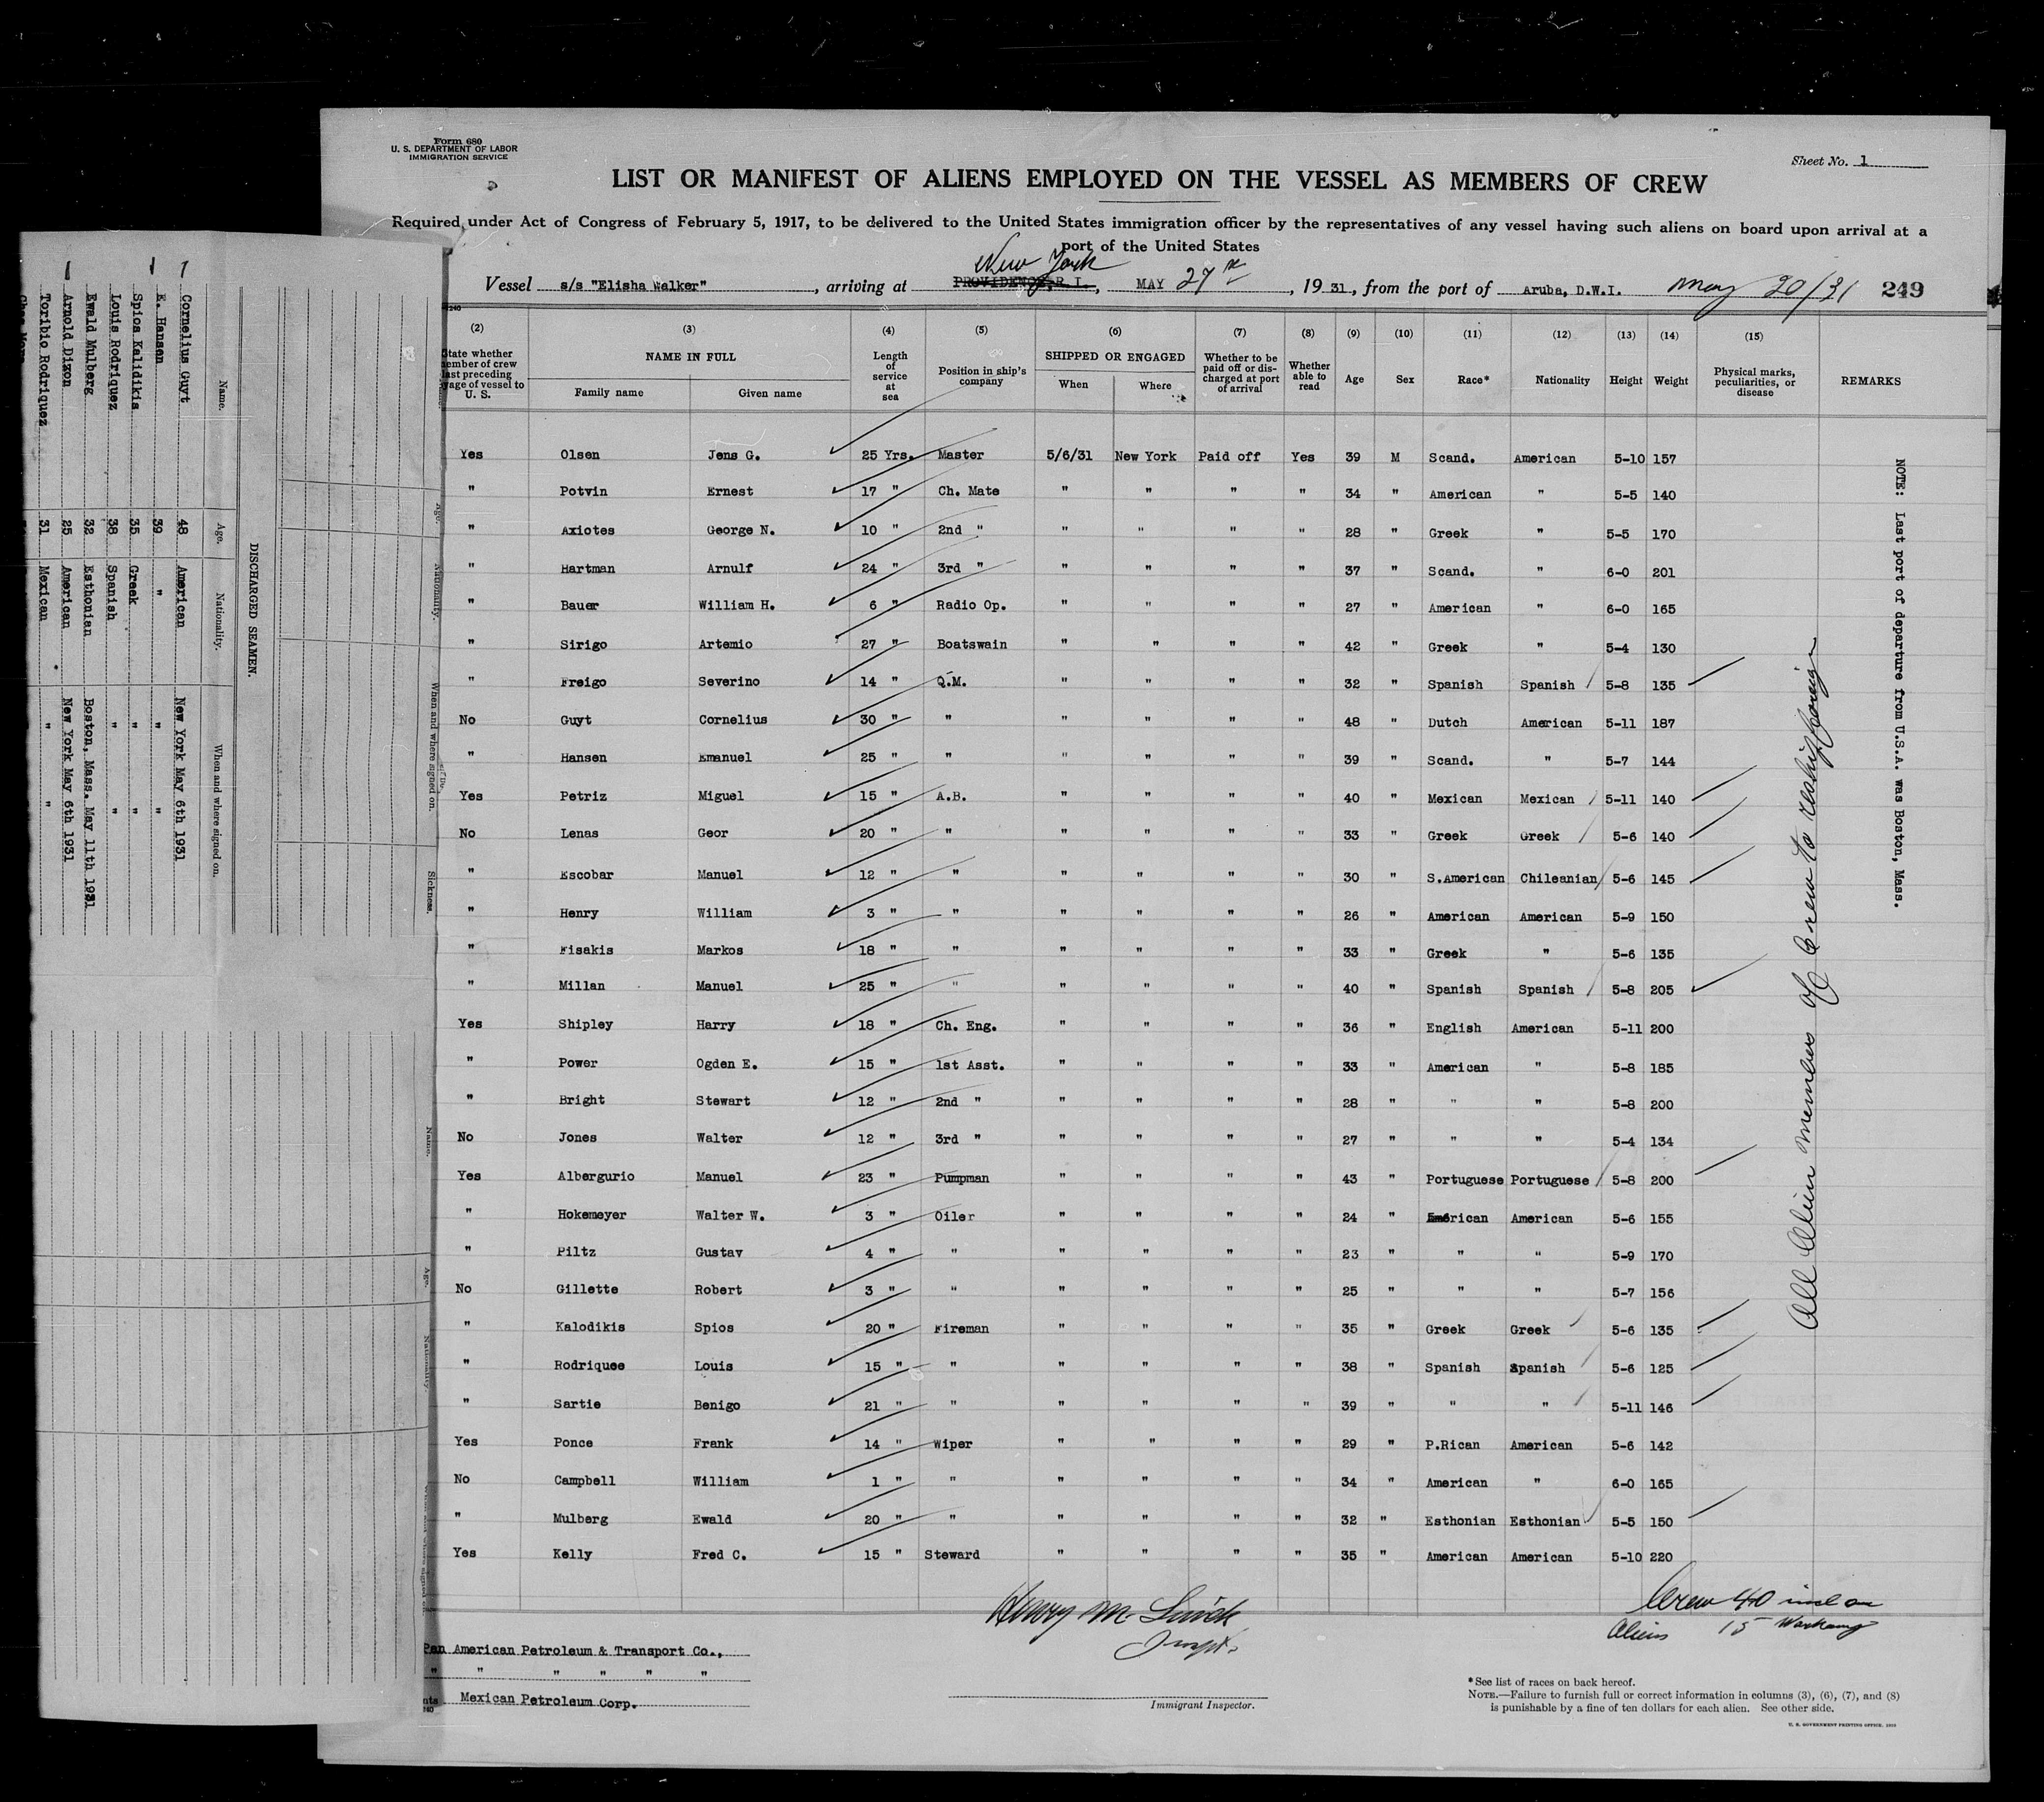 Form 680
U. S. DEPARTMENT OF LABOR
IMMIGRATION SERVICE
Sheet No. 1
LIST OR MANIFEST OF ALIENS EMPLOYED ON THE VESSEL AS MEMBERS OF CREW
Required under Act of Congress of February 5, 1917, to be delivered to the United States immigration officer by the representatives of any vessel having such aliens on board upon arrival at a
port of the United States
New York
Vessel s/s "Elisha Walker", arriving at PROVIDENCE, R.I., MAY 27, 19 31, from the port of Aruba, D.W.I. May 20/31 249
(2) (3) (4) (5) (6) (7) (8) (9) (10) (11) (12) (13) (14) (15)
State whether member of crew last preceding voyage of vessel to U. S. NAME IN FULL Family name Given name Length of service at sea Position in ship's company SHIPPED OR ENGAGED When Where Whether to be paid off or discharged at port of arrival Whether able to read Age Sex Race* Nationality Height Weight Physical marks, peculiarities, or disease REMARKS
Yes Olsen Jens G. 25 Yrs. Master 5/6/31 New York Paid off Yes 39 M Scand. American 5-10 157
" Potvin Ernest 17 " Ch. Mate " " " " 34 " American " 5-5 140
" Axiotes George N. 10 " 2nd " " " " " 28 " Greek " 5-5 170
" Hartman Arnulf 24 " 3rd " " " " " 37 " Scand. " 6-0 201
" Bauer William H. 6 " Radio Op. " " " " 27 " American " 6-0 165
" Sirigo Artemio 27 " Boatswain " " " " 42 " Greek " 5-4 130
" Freigo Severino 14 " Q.M. " " " " 32 " Spanish Spanish 5-8 135
No Guyt Cornelius 30 " " " " " " 48 " Dutch American 5-11 187
" Hansen Emanuel 25 " " " " " " 39 " Scand. " 5-7 144
Yes Petriz Miguel 15 " A.B. " " " " 40 " Mexican Mexican 5-11 140
No Lenas Geor 20 " " " " " " 33 " Greek Greek 5-6 140
" Escobar Manuel 12 " " " " " " 30 " S.American Chileanian 5-6 145
" Henry William 3 " " " " " " 26 " American American 5-9 150
" Fisakis Markos 18 " " " " " " 33 " Greek " 5-6 135
" Millan Manuel 25 " " " " " " 40 " Spanish Spanish 5-8 205
Yes Shipley Harry 18 " Ch. Eng. " " " " 36 " English American 5-11 200
" Power Ogden E. 15 " 1st Asst. " " " " 33 " American " 5-8 185
" Bright Stewart 12 " 2nd " " " " " 28 " " " 5-8 200
No Jones Walter 12 " 3rd " " " " " 27 " " " 5-4 134
Yes Albergurio Manuel 23 " Pumpman " " " " 43 " Portuguese Portuguese 5-8 200
" Hokemeyer Walter W. 3 " Oiler " " " " 24 " American American 5-6 155
" Piltz Gustav 4 " " " " " " 23 " " " 5-9 170
No Gillette Robert 3 " " " " " " 25 " " " 5-7 156
" Kalodikis Spios 20 " Fireman " " " " 35 " Greek Greek 5-6 135
" Rodriquee Louis 15 " " " " " " 38 " Spanish Spanish 5-6 125
" Sartie Benigo 21 " " " " " " 39 " " " 5-11 146
Yes Ponce Frank 14 " Wiper " " " " 29 " P.Rican American 5-6 142
No Campbell William 1 " " " " " " 34 " American " 6-0 165
" Mulberg Ewald 20 " " " " " " 32 " Esthonian Esthonian 5-5 150
Yes Kelly Fred C. 15 " Steward " " " " 35 " American American 5-10 220
NOTE: Last port of departure from U.S.A. was Boston, Mass.
All Alien members of Crew to reship foreign
Crew 40
Aliens 15
Henry M.
Pan American Petroleum & Transport Co.,
" " " " " "
Mexican Petroleum Corp.
Immigrant Inspector.
*See list of races on back hereof.
NOTE.—Failure to furnish full or correct information in columns (3), (6), (7), and (8)
is punishable by a fine of ten dollars for each alien. See other side.
U. S. GOVERNMENT PRINTING OFFICE
DISCHARGED SEAMEN.
Name. Age. Nationality. When and where signed on.
Cornelius Guyt 48 American New York May 6th 1931
E. Hansen 39 " " "
Spios Kalidikis 35 Greek " "
Louis Rodriquez 38 Spanish " "
Ewald Mulberg 32 Esthonian Boston, Mass. May 11th 1931
Arnold Dixon 25 American New York May 6th 1931
Toribio Rodriquez 31 Mexican " "
Age. Nationality. When and where signed on. Sickness.
Name. Age. Nationality.